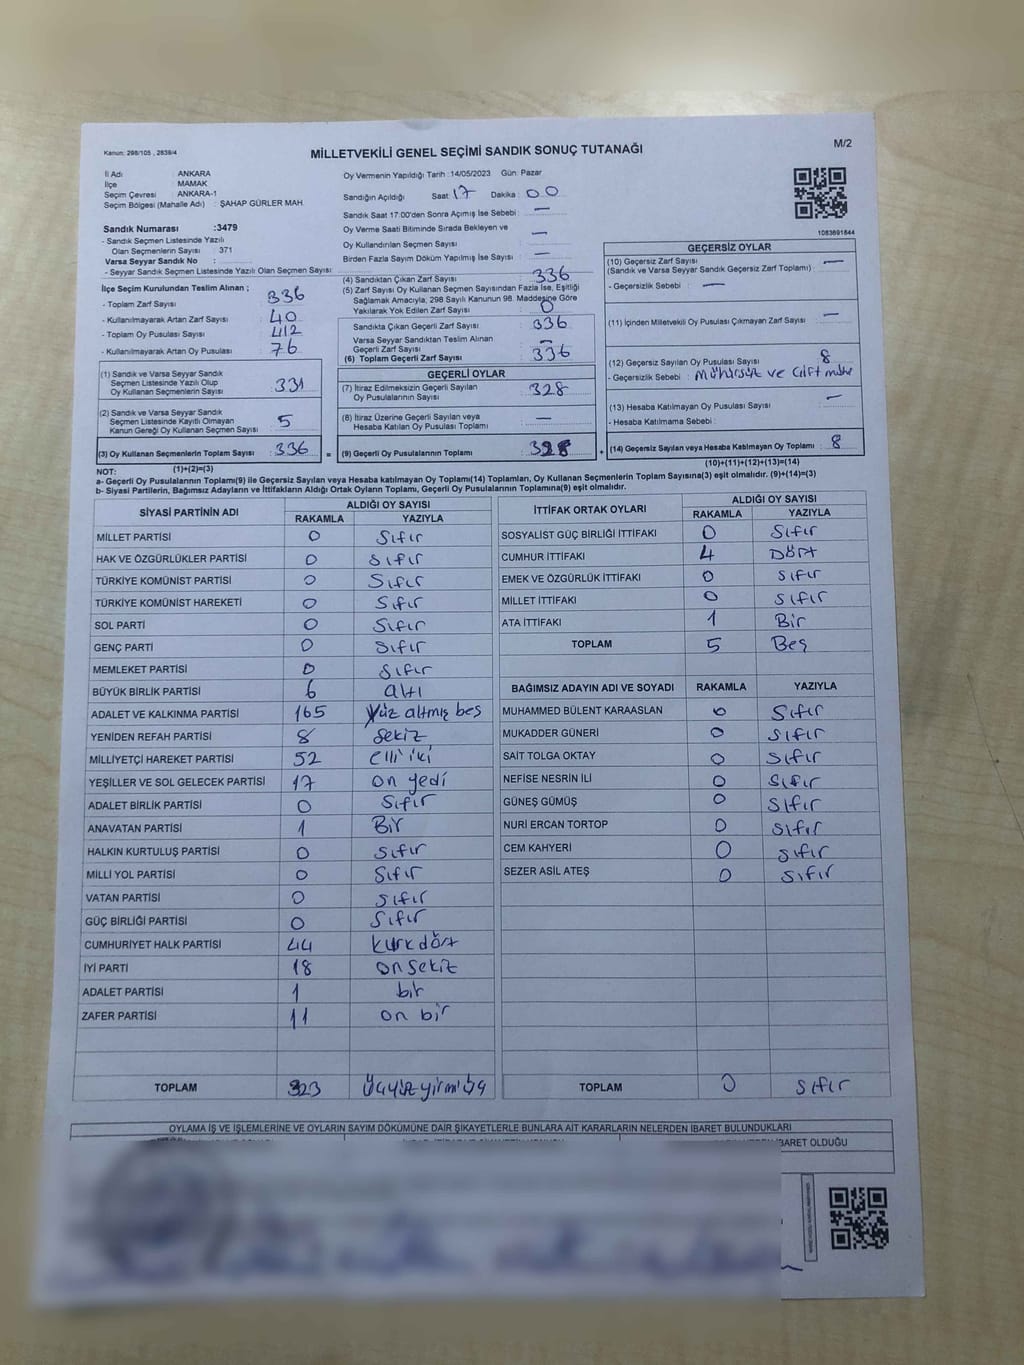 Kanun: 298/105 , 2839/4
MİLLETVEKİLİ GENEL SEÇİMİ SANDIK SONUÇ TUTANAĞI
M/2
İl Adı : ANKARA
İlçe : MAMAK
Seçim Çevresi : ANKARA-1
Seçim Bölgesi (Mahalle Adı) : ŞAHAP GÜRLER MAH.
Sandık Numarası :3479
- Sandık Seçmen Listesinde Yazılı
Olan Seçmenlerin Sayısı : 371
Varsa Seyyar Sandık No :
- Seyyar Sandık Seçmen Listesinde Yazılı Olan Seçmen Sayısı:
İlçe Seçim Kurulundan Teslim Alınan ;
- Toplam Zarf Sayısı :
- Kullanılmayarak Artan Zarf Sayısı : 40
- Toplam Oy Pusulası Sayısı : 412
- Kullanılmayarak Artan Oy Pusulası : 76
(1) Sandık ve Varsa Seyyar Sandık
Seçmen Listesinde Yazılı Olup
Oy Kullanan Seçmenlerin Sayısı : 331
(2) Sandık ve Varsa Seyyar Sandık
Seçmen Listesinde Kayıtlı Olmayan
Kanun Gereği Oy Kullanan Seçmen Sayısı : 5
(3) Oy Kullanan Seçmenlerin Toplam Sayısı : 336 =
(1)+(2)=(3)
Oy Vermenin Yapıldığı Tarih :14/05/2023 Gün: Pazar
Sandığın Açıldığı Saat : 17 Dakika : 00
Sandık Saat 17:00'den Sonra Açımış İse Sebebi : —
Oy Verme Saati Bitiminde Sırada Bekleyen ve
Oy Kullandırılan Seçmen Sayısı : —
Birden Fazla Sayım Döküm Yapılmış İse Sayısı : —
(4) Sandıktan Çıkan Zarf Sayısı : 336
(5) Zarf Sayısı Oy Kullanan Seçmen Sayısından Fazla İse, Eşitliği
Sağlamak Amacıyla, 298 Sayılı Kanunun 98. Maddesine Göre
Yakılarak Yok Edilen Zarf Sayısı : 0
Sandıkta Çıkan Geçerli Zarf Sayısı : 336
Varsa Seyyar Sandıktan Teslim Alınan
Geçerli Zarf Sayısı : —
(6) Toplam Geçerli Zarf Sayısı : 336
GEÇERLİ OYLAR
(7) İtiraz Edilmeksizin Geçerli Sayılan
Oy Pusulalarının Sayısı : 328
(8) İtiraz Üzerine Geçerli Sayılan veya
Hesaba Katılan Oy Pusulası Toplamı : —
(9) Geçerli Oy Pusulalarının Toplamı : 328 +
1083691844
GEÇERSİZ OYLAR
(10) Geçersiz Zarf Sayısı
(Sandık ve Varsa Seyyar Sandık Geçersiz Zarf Toplamı) : —
- Geçersizlik Sebebi : —
(11) İçinden Milletvekili Oy Pusulası Çıkmayan Zarf Sayısı : —
(12) Geçersiz Sayılan Oy Pusulası Sayısı : 8
- Geçersizlik Sebebi : mühürsüz ve çift mühür
(13) Hesaba Katılmayan Oy Pusulası Sayısı : —
- Hesaba Katılmama Sebebi :
(14) Geçersiz Sayılan veya Hesaba Katılmayan Oy Toplamı : 8
(10)+(11)+(12)+(13)=(14)
NOT:
a- Geçerli Oy Pusulalarının Toplamı(9) ile Geçersiz Sayılan veya Hesaba katılmayan Oy Toplamı(14) Toplamları, Oy Kullanan Seçmenlerin Toplam Sayısına(3) eşit olmalıdır. (9)+(14)=(3)
b- Siyasi Partilerin, Bağımsız Adayların ve İttifakların Aldığı Ortak Oyların Toplamı, Geçerli Oy Pusulalarının Toplamına(9) eşit olmalıdır.
SİYASİ PARTİNİN ADI ALDIĞI OY SAYISI
RAKAMLA YAZIYLA
MİLLET PARTİSİ 0 Sıfır
HAK VE ÖZGÜRLÜKLER PARTİSİ 0 Sıfır
TÜRKİYE KOMÜNİST PARTİSİ 0 Sıfır
TÜRKİYE KOMÜNİST HAREKETİ 0 Sıfır
SOL PARTİ 0 Sıfır
GENÇ PARTİ 0 Sıfır
MEMLEKET PARTİSİ 0 Sıfır
BÜYÜK BİRLİK PARTİSİ 6 altı
ADALET VE KALKINMA PARTİSİ 165 Yüz altmış beş
YENİDEN REFAH PARTİSİ 8 sekiz
MİLLİYETÇİ HAREKET PARTİSİ 52 elli iki
YEŞİLLER VE SOL GELECEK PARTİSİ 17 on yedi
ADALET BİRLİK PARTİSİ 0 Sıfır
ANAVATAN PARTİSİ 1 Bir
HALKIN KURTULUŞ PARTİSİ 0 Sıfır
MİLLİ YOL PARTİSİ 0 Sıfır
VATAN PARTİSİ 0 Sıfır
GÜÇ BİRLİĞİ PARTİSİ 0 Sıfır
CUMHURİYET HALK PARTİSİ 44 kırk dört
İYİ PARTİ 18 on sekiz
ADALET PARTİSİ 1 bir
ZAFER PARTİSİ 11 on bir
TOPLAM 323 Üçyüz yirmi üç
İTTİFAK ORTAK OYLARI ALDIĞI OY SAYISI
RAKAMLA YAZIYLA
SOSYALİST GÜÇ BİRLİĞİ İTTİFAKI 0 Sıfır
CUMHUR İTTİFAKI 4 Dört
EMEK VE ÖZGÜRLÜK İTTİFAKI 0 Sıfır
MİLLET İTTİFAKI 0 Sıfır
ATA İTTİFAKI 1 Bir
TOPLAM 5 Beş
BAĞIMSIZ ADAYIN ADI VE SOYADI RAKAMLA YAZIYLA
MUHAMMED BÜLENT KARAASLAN 0 Sıfır
MUKADDER GÜNERİ 0 Sıfır
SAİT TOLGA OKTAY 0 Sıfır
NEFİSE NESRİN İLİ 0 Sıfır
GÜNEŞ GÜMÜŞ 0 Sıfır
NURİ ERCAN TORTOP 0 Sıfır
CEM KAHYERİ 0 Sıfır
SEZER ASİL ATEŞ 0 Sıfır
TOPLAM 0 Sıfır
OYLAMA İŞ VE İŞLEMLERİNE VE OYLARIN SAYIM DÖKÜMÜNE DAİR ŞİKAYETLERLE BUNLARA AİT KARARLARIN NELERDEN İBARET BULUNDUKLARI
İBARET OLDUĞU